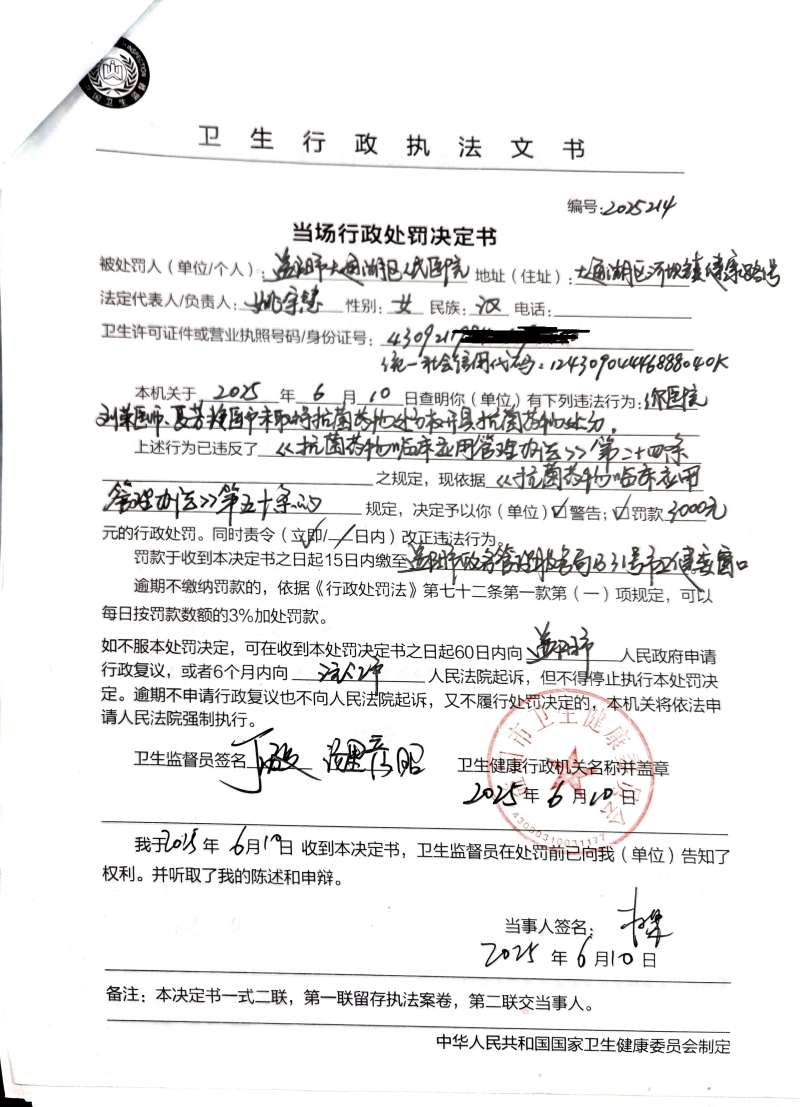 卫生行政执法文书
编号:2025214
当场行政处罚决定书
被处罚人（单位/个人）：益阳市大通湖区人民医院 地址（住址）：大通湖区河坝镇健康路 号
法定代表人/负责人： 性别：女 民族：汉 电话：
卫生许可证件或营业执照号码/身份证号：430921
统一社会信用代码：12430904446888040K
本机关于 2025 年 6 月 10 日查明你（单位）有下列违法行为：你医院
医师、夏芳 医师未取得抗菌药物处方权开具抗菌药物处方。
上述行为已违反了《抗菌药物临床应用管理办法》第二十四条
之规定，现依据《抗菌药物临床应用
管理办法》第五十条 规定，决定予以你（单位）☑警告；☑罚款 3000元
元的行政处罚。同时责令（立即√/ 日内）改正违法行为。
罚款于收到本决定书之日起15日内缴至益阳市政务管理服务局B31号市卫健委窗口
逾期不缴纳罚款的，依据《行政处罚法》第七十二条第一款第（一）项规定，可以
每日按罚款数额的3%加处罚款。
如不服本处罚决定，可在收到本处罚决定书之日起60日内向 益阳市 人民政府申请
行政复议，或者6个月内向 沅江市 人民法院起诉，但不得停止执行本处罚决
定。逾期不申请行政复议也不向人民法院起诉，又不履行处罚决定的，本机关将依法申
请人民法院强制执行。
卫生监督员签名 卫生健康行政机关名称并盖章
益阳市卫生健康委员会
2025 年 6 月 10 日
43090310031177
我于2025年 6月10日 收到本决定书，卫生监督员在处罚前已向我（单位）告知了
权利。并听取了我的陈述和申辩。
当事人签名：
2025 年 6 月 10 日
备注：本决定书一式二联，第一联留存执法案卷，第二联交当事人。
中华人民共和国国家卫生健康委员会制定